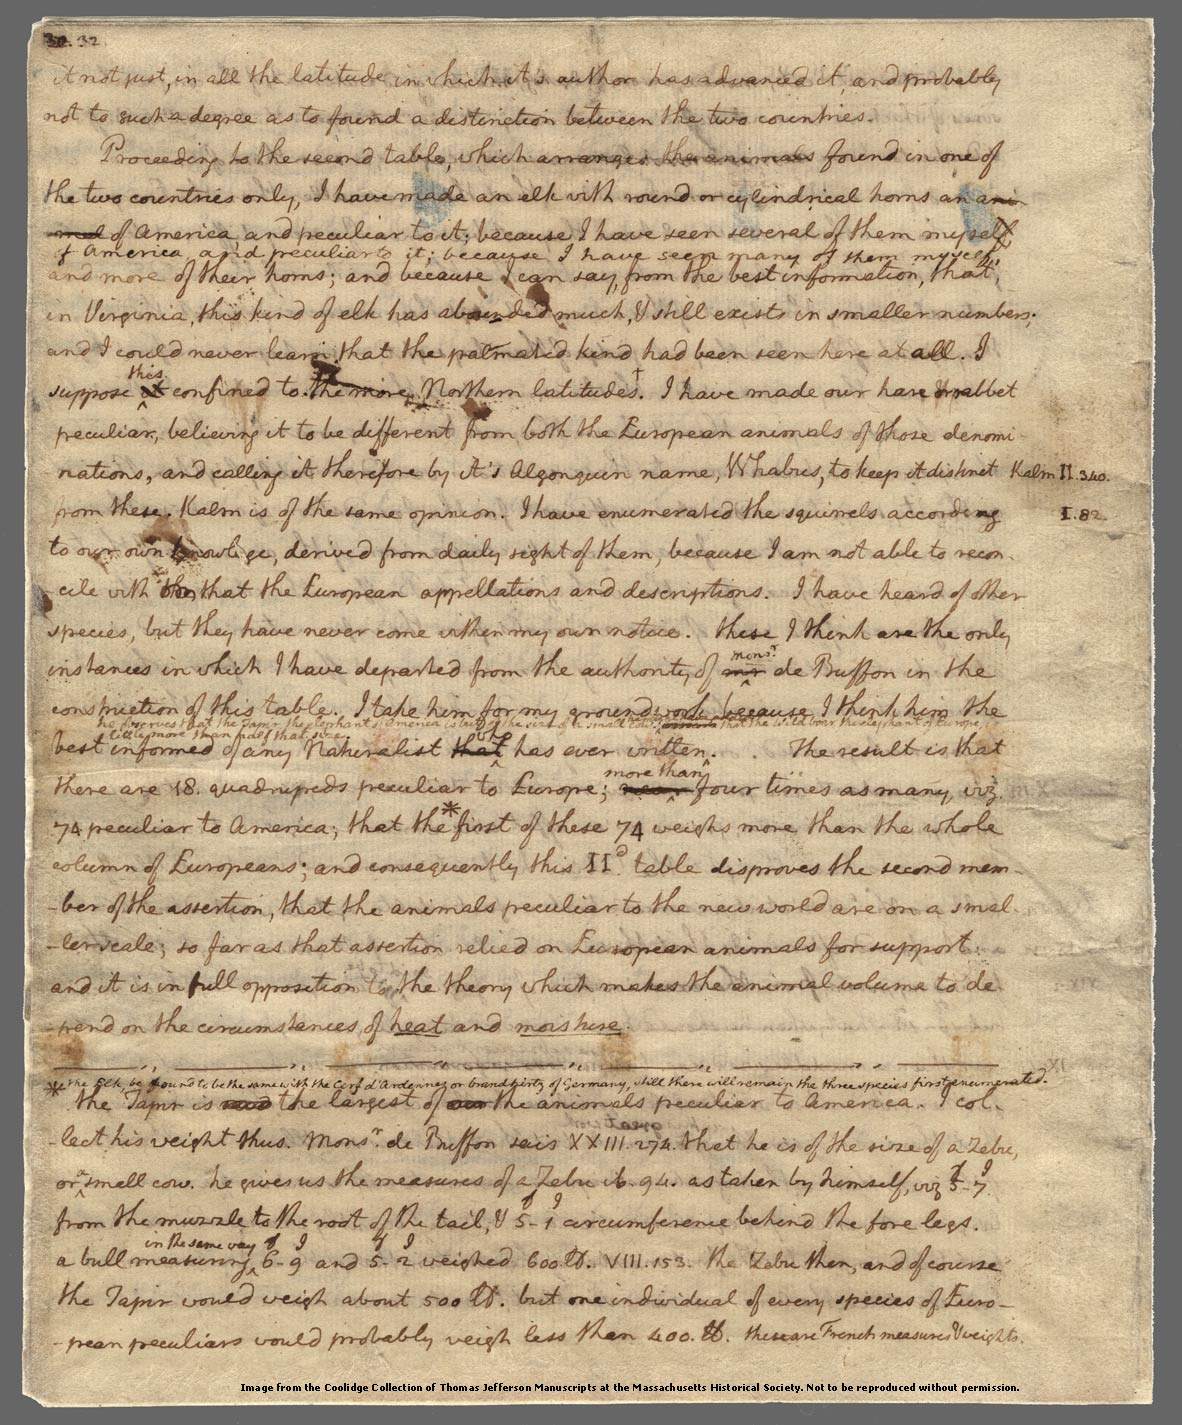 32.
it not just, in all the latitude in which it's author has advanced it, and probably
not to such a degree as to found a distinction between the two countries.
Proceeding to the second table, which arranges the animals found in one of
the two countries only, I have made an elk with round or cylindrical horns an ani-
mal of America, and peculiar to it; because I have seen several of them myself
of America and peculiar to it; because I have seen many of them myself,
and more of their horns; and because I can say, from the best information, that,
in Virginia, this kind of elk has abounded much, & still exists in smaller numbers;
and I could never learn that the palmated kind had been seen here at all. I
this
suppose it confined to the more Northern latitudes†. I have made our hare or rabbet
peculiar, believing it to be different from both the European animals of those denomi-
nations, and calling it therefore by it's Algonquin name, Whabus, to keep it distinct Kalm II.340.
from these. Kalm is of the same opinion. I have enumerated the squirrels according I.82.
to our own knowlege, derived from daily sight of them, because I am not able to recon-
-cile with that the European appellations and descriptions. I have heard of other
species, but they have never come within my own notice. these I think are the only
monsr.
instances in which I have departed from the authority of mr de Buffon in the
construction of this table. I take him for my ground work because I think him the
he observes that the Tapir the elephant of America is but of the size of a small cow, that the wild boar the elephant of Europe,
little more than half that size.
who
best informed of any Naturalist that has ever written. The result is that
more than
there are 18. quadrupeds peculiar to Europe; near four times as many, viz.
74 peculiar to America; that the *first of these 74 weighs more than the whole
column of Europeans; and consequently this IId. table disproves the second mem-
-ber of the assertion, that the animals peculiar to the new world are on a smal-
-ler scale; so far as that assertion relied on European animals for support:
and it is in full opposition to the theory which makes the animal volume to de-
-pend on the circumstances of heat and moisture.
the Elk, be found to be the same with the Cerf d'Ardennes or brandhirtz of Germany, still there will remain the three species first enumerated.
* the Tapir is the largest of the animals peculiar to America. I col-
-lect his weight thus. Monsr. de Buffon sais XXIII.274. that he is of the size of a Zebu,
or a small cow. he gives us the measures of a Zebu ib.94. as taken by himself, viz 5f-7I
from the muzzle to the root of the tail, & 5f-1I circumference behind the fore legs.
in the same way
a bull measuring 6f-9I and 5f-2I weighed 600℔. VIII.153. the Zebu then, and of course
the Tapir would weigh about 500 ℔. but one individual of every species of Euro-
-pean peculiars would probably weigh less than 400.℔. these are French measures & weights.
Image from the Coolidge Collection of Thomas Jefferson Manuscripts at the Massachusetts Historical Society. Not to be reproduced without permission.